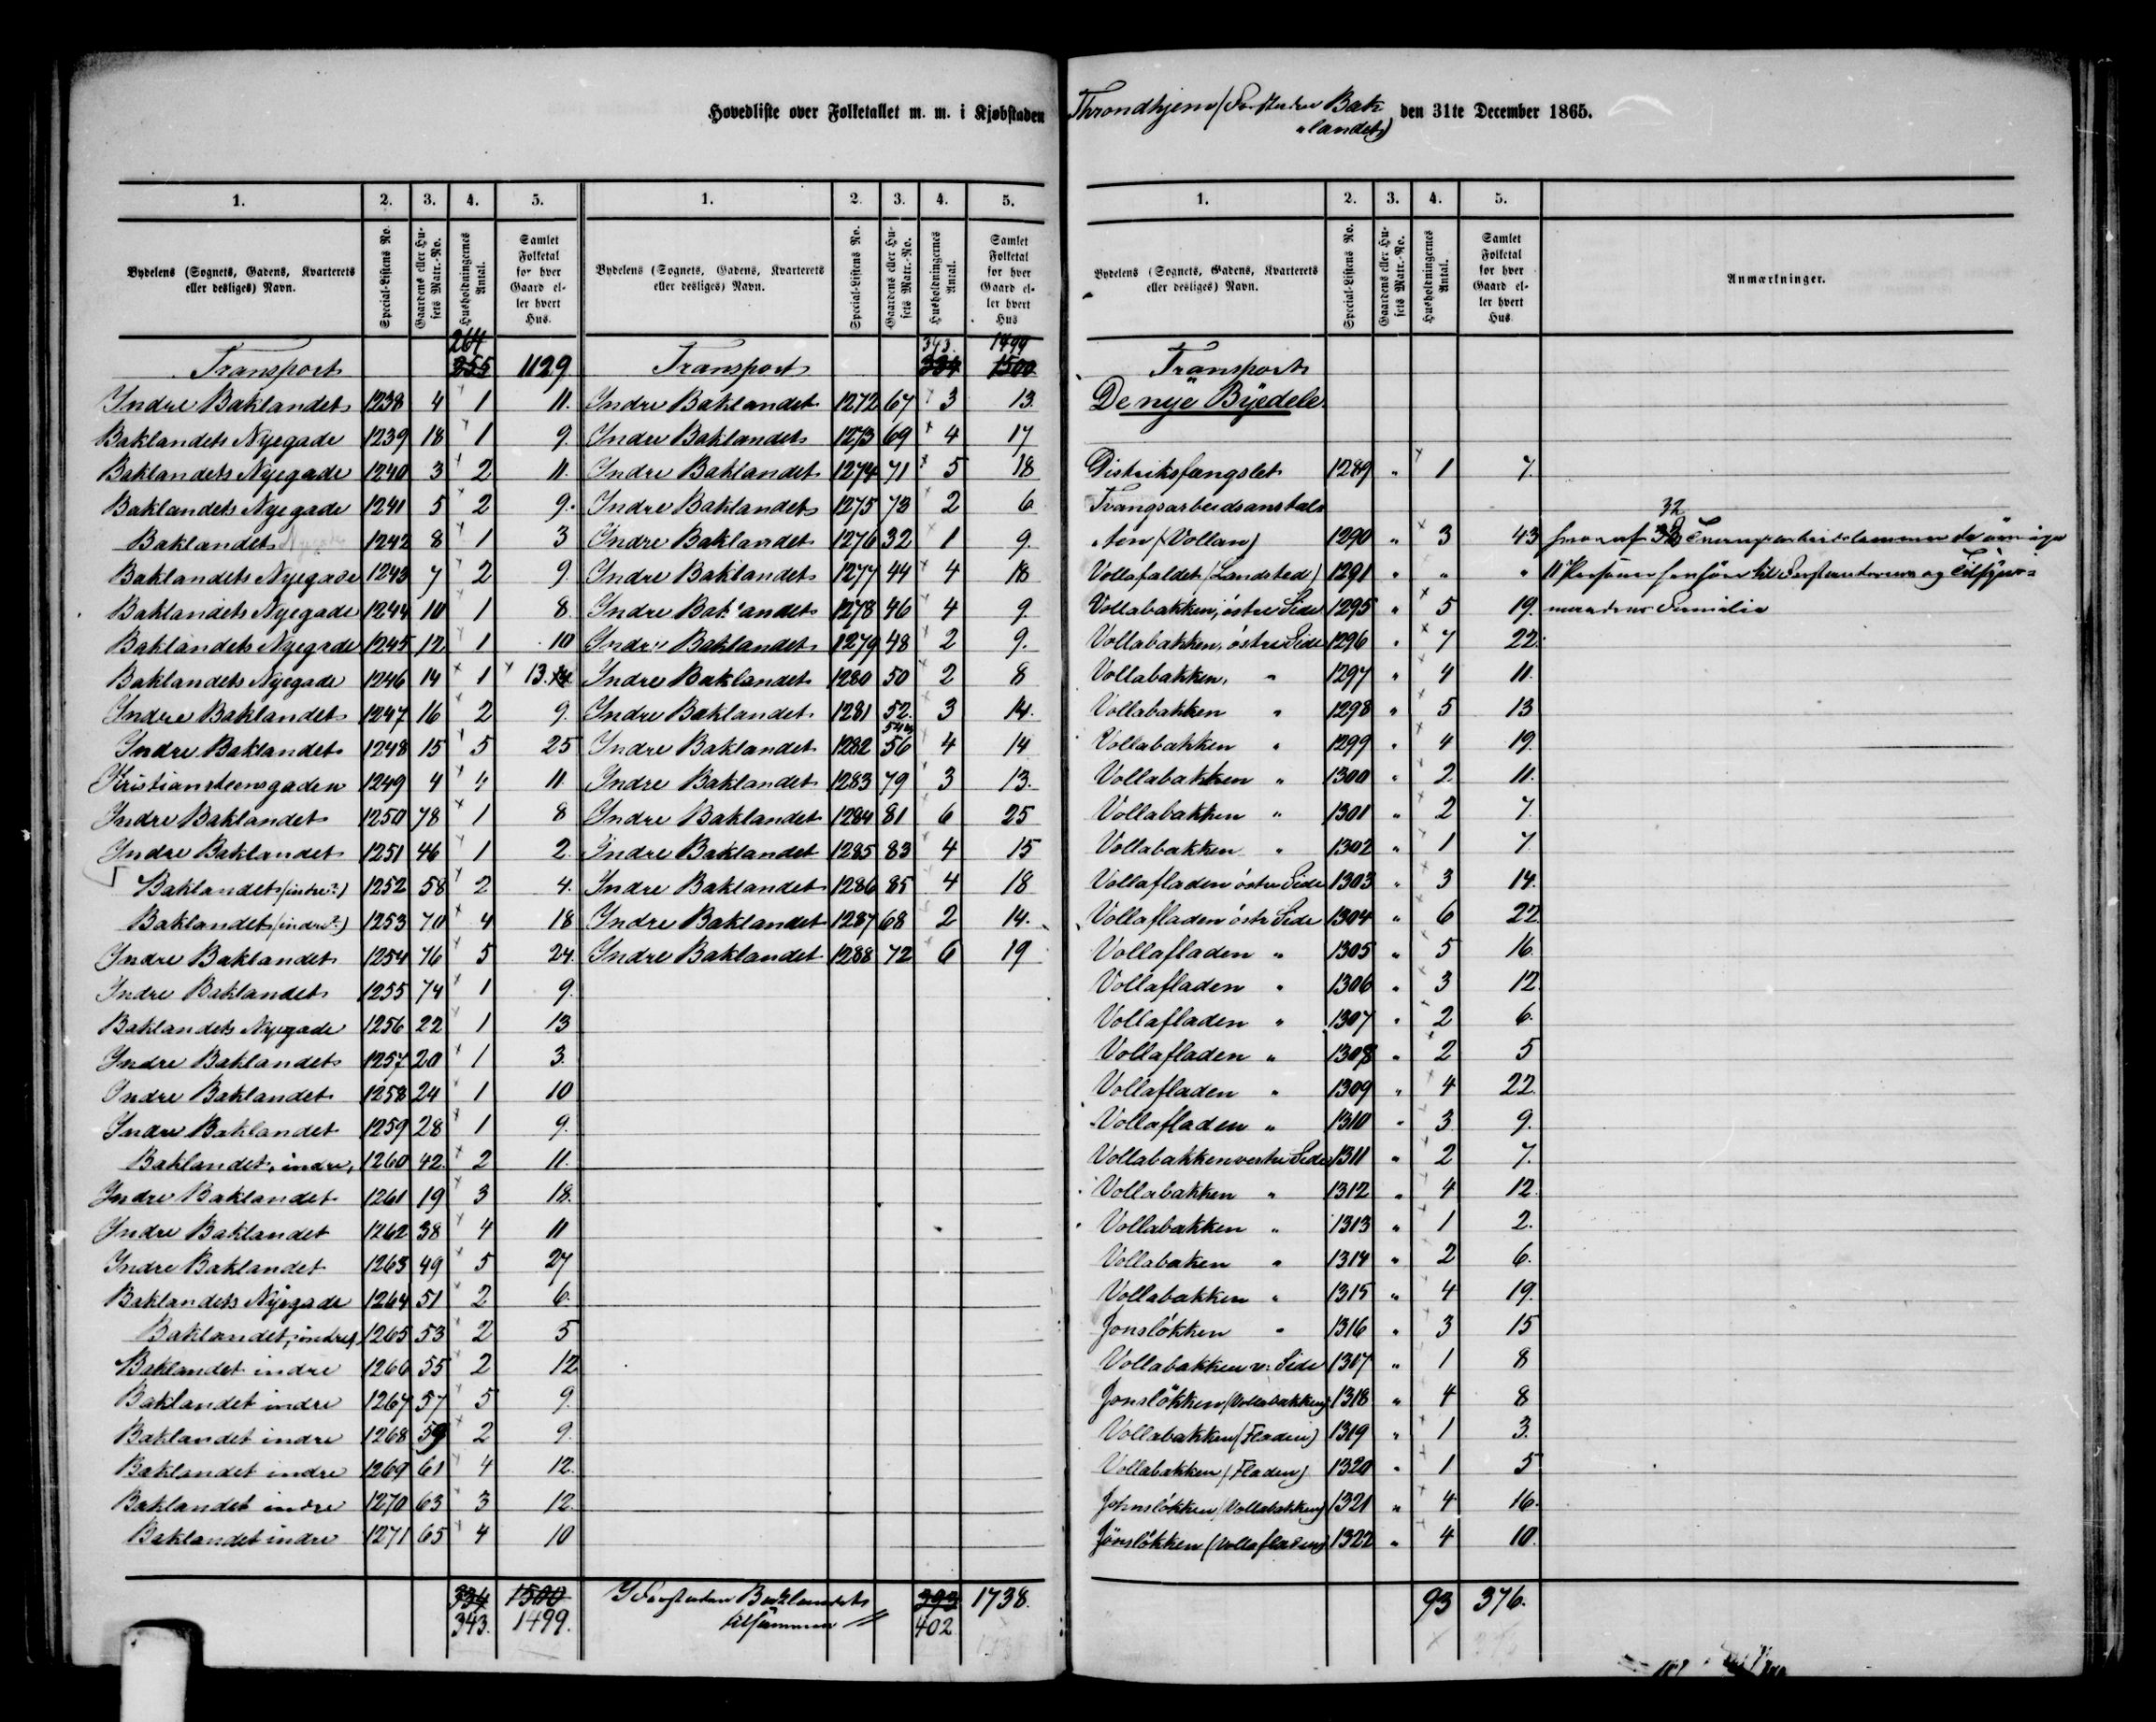 Hovedliste over Folketallet m. m. i Kjøbstaden Throndhjem (Forstaden Bak-
landet) den 31te December 1865.
1. 2. 3. 4. 5. 1. 2. 3. 4. 5.
Bydelens (Sognets, Gadens, Kvarterets eller desliges) Navn. Special-Listens No. Gaardens eller Husets Matr.-No. Husholdningernes Antal. Samlet Folketal for hver Gaard eller hvert Hus. Bydelens (Sognets, Gadens, Kvarterets eller desliges) Navn. Special-Listens No. Gaardens eller Husets Matr.-No. Husholdningernes Antal. Samlet Folketal for hver Gaard eller hvert Hus
264 343. 1499
Transport 255 1129 Transport 334 1500
Indre Baklandet 1238 4 1 11. Indre Baklandet 1272 67 3 13.
Baklandets Nyegade 1239 18 1 9. Indre Baklandet 1273 69 4 17
Baklandets Nyegade 1240 3 2 11. Indre Baklandet 1274 71 5 18
Baklandets Nyegade 1241 5 2 9. Indre Baklandet 1275 73 2 6
Baklandets Nyegade 1242 8 1 3 Indre Baklandet 1276 32 1 9.
Baklandets Nyegade 1243 7 2 9. Indre Baklandet 1277 44 4 18
Baklandets Nyegade 1244 10 1 8. Indre Baklandet 1278 46 4 9.
Baklandets Nyegade 1245 12 1 10 Indre Baklandet 1279 48 2 9.
Baklandets Nyegade 1246 14 1 13. 14 Indre Baklandet 1280 50 2 8
Indre Baklandet 1247 16 2 9. Indre Baklandet 1281 52. 3 14.
Indre Baklandet 1248 15 5 25 Indre Baklandet 1282 54 og 56 4 14
Kristianstensgaden 1249 4 4 11. Indre Baklandet 1283 79 3 13.
Indre Baklandet 1250 78 1 8 Indre Baklandet 1284 81 6 25
Indre Baklandet 1251 46 1 2. Indre Baklandet 1285 83 4 15
Baklandet (indre?) 1252 58 2 4. Indre Baklandet 1286 85 4 18
Baklandet (indre?) 1253 70 4 18 Indre Baklandet 1287 68 2 14.
Indre Baklandet 1254 76 5 24. Indre Baklandet 1288 72 6 19
Indre Baklandet 1255 74 1 9.
Baklandets Nyegade 1256 22 1 13
Indre Baklandet 1257 20 1 3.
Indre Baklandet 1258 24 1 10
Indre Baklandet 1259 28 1 9.
Baklandet, indre, 1260 42. 2 11.
Indre Baklandet 1261 19 3 18.
Indre Baklandet 1262 38 4 11
Indre Baklandet 1263 49 5 27
Baklandets Nyegade 1264 51 2 6.
Baklandet, indre, 1265 53 2 5
Baklandet indre 1266 55 2 12
Baklandet indre 1267 57 5 9.
Baklandet indre 1268 59 2 9.
Baklandet indre 1269 61 4 12.
Baklandet indre 1270 63 3 12
Baklandet indre 1271 65 4 10
334 1500 I Forstaden Baklandet 393 1738.
343. 1499. tilsammen 402
1. 2. 3. 4. 5.
Bydelens (Sognets, Gadens, Kvarterets eller desliges) Navn. Special-Listens No. Gaardens eller Husets Matr.-No. Husholdningernes Antal. Samlet Folketal for hver Gaard eller hvert Hus Anmærkninger.
Transport
De nye Byedele.
Distriksfængslet 1289 " 1 7.
Tvangsarbeidsanstal-
ten (Vollan) 1290 " 3 43 hvoraf 32 Tvangsarbeidslemmer de øvrige
Vollafaldet (Landsted) 1291 " " " 11 Personer henhøre til Forstanderens og Tilsyns-
Vollabakken, østre Side 1295 " 5 19. mændenes Familie
Vollabakken, østre Side 1296 " 7 22.
Vollabakken, " 1297 " 4 11.
Vollabakken " 1298 " 5 13
Vollabakken " 1299 " 4 19.
Vollabakken " 1300 " 2 11.
Vollabakken " 1301 " 2 7.
Vollabakken " 1302 " 1 7.
Vollafladen østre Side 1303 " 3 14.
Vollafladen østre Side 1304 " 6 22
Vollafladen " 1305 " 5 16.
Vollafladen " 1306 " 3 12
Vollafladen " 1307 " 2 6.
Vollafladen " 1308 " 2 5
Vollafladen " 1309 " 4 22.
Vollafladen " 1310 " 3 9.
Vollabakken vestre Side 1311 " 2 7.
Vollabakken " 1312 " 4 12.
Vollabakken " 1313 " 1 2.
Vollabaken " 1314 " 2 6.
Vollabakken " 1315 " 4 19.
Jonsløkken " 1316 " 3 15
Vollabakken v: Side 1317 " 1 8
Jonsløkken (Vollabakken) 1318 " 4 8
Vollabakken (Fladen) 1319 " 1 3.
Vollabakken (Fladen) 1320 " 1 5
Johnsløkken (Vollabakken) 1321 " 4 16.
Jonsløkken (Vollafladen) 1322 " 4 10.
93 376.